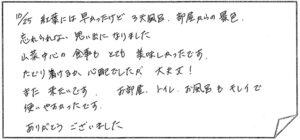 10/25 紅葉には早かったけど 3大風呂、部屋からの景色
忘れられない思い出になりました
山菜中心の食事もとても美味しかったです。
たどり着けるか心配でしたが大丈夫!
また来たいです。 お部屋、トイレ、お風呂もキレイで
使いやすかったです。
ありがとうございました